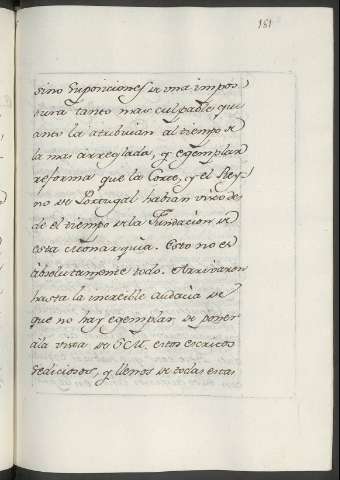 151
sino expociciones de una impos
tura tanto mas culpable, qu
anto la atribuian al tiempo de
la mas arreglada, y egemplar
reforma que la Corte, y el Rey
no de Portugal habian visto des
de el tiempo de la Fundacion de
esta Monarquia. Esto no es
absolutamente todo. Arrivaron
hasta la increible audacia de
que no hay egemplar de poner
ala vista de S.M. estos escritos
sediciosos, y llenos de todas estas